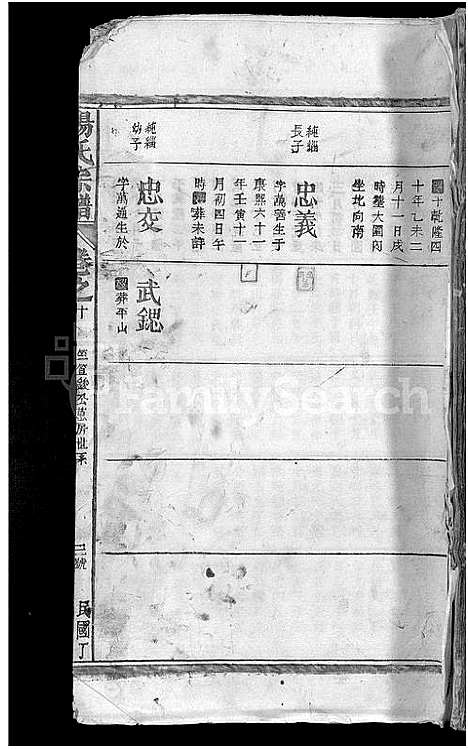 十乾隆四
十年乙未二
月十一日戌
時塟大園內
坐北向南
純緇
長子
忠義
字萬善生于
康熙六十一
年壬寅十二
月初四日午
時 葬未詳
純緇
幼子
忠友
字萬通生於
武鍶
葬平山
楊氏宗譜
卷之十
三號
民國丁
FamilySearch